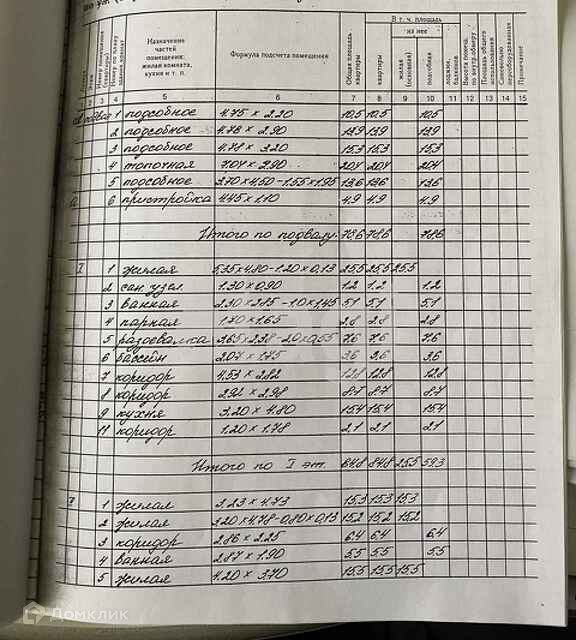 В т. ч. площадь
из нее
Литера
Этаж
Номер помещения (квартиры)
Номер по плану здания комнат
Назначение частей помещения: жилая комната, кухня и т. п.
Формула подсчета помещения
Общая площадь квартиры
квартиры
жилая (основная)
подсобная
лоджии, балконов
Высота помещ. по внутр.обмеру
Площадь общего использования
Самовольно переоборудованная
Примечание
1 2 3 4 5 6 7 8 9 10 11 12 13 14 15
подвал 1 подсобное 4.75 × 2.20 10,5 10,5 10,5
2 подсобное 4.78 × 2.90 13.9 13.9 13.9
3 подсобное 4.78 × 3.20 15.3 15.3 15.3
4 топочная 7.04 × 2.90 20.4 20.4 20.4
5 подсобное 3.70×4,50-1.55×1.95 13.6 13.6 13.6
а 6 пристройка 4.45×1.10 4.9 4.9 4.9
Итого по подвалу: 78,6 78,6 78.6
I 1 жилая 5.35×4.80-1.20×0,13 25.5 25.5 25.5
2 сан. узел 1.30×0,90 1.2 1.2 1.2
3 ванная 2.30×2.85-1.0×1,45 5.1 5.1 5.1
4 парная 1.70×1.65 2.8 2.8 2.8
5 раздевалка 3.65×2.38-2.0×0,55 7.6 7.6 7.6
6 бассейн 2.07×1.75 3.6 3.6 3.6
7 коридор 4.53×2.82 12.8 12.8 12.8
8 коридор 2.92×2.98 8.7 8.7 8.7
9 кухня 3.20×4.80 15.4 15.4 15.4
11 коридор 1.20×1.78 2.1 2.1 2.1
Итого по I эт. 84.8 84.8 25.5 59.3
1 жилая 3.23×4.73 15.3 15.3 15.3
2 жилая 3.20×4.78-0,80×0,13 15.2 15.2 15.2
3 коридор 2.86×2.25 6.4 6.4 6.4
4 ванная 2.87×1.90 5.5 5.5 5.5
5 жилая 4.20×3.70 15.5 15.5 15.5
Домклик